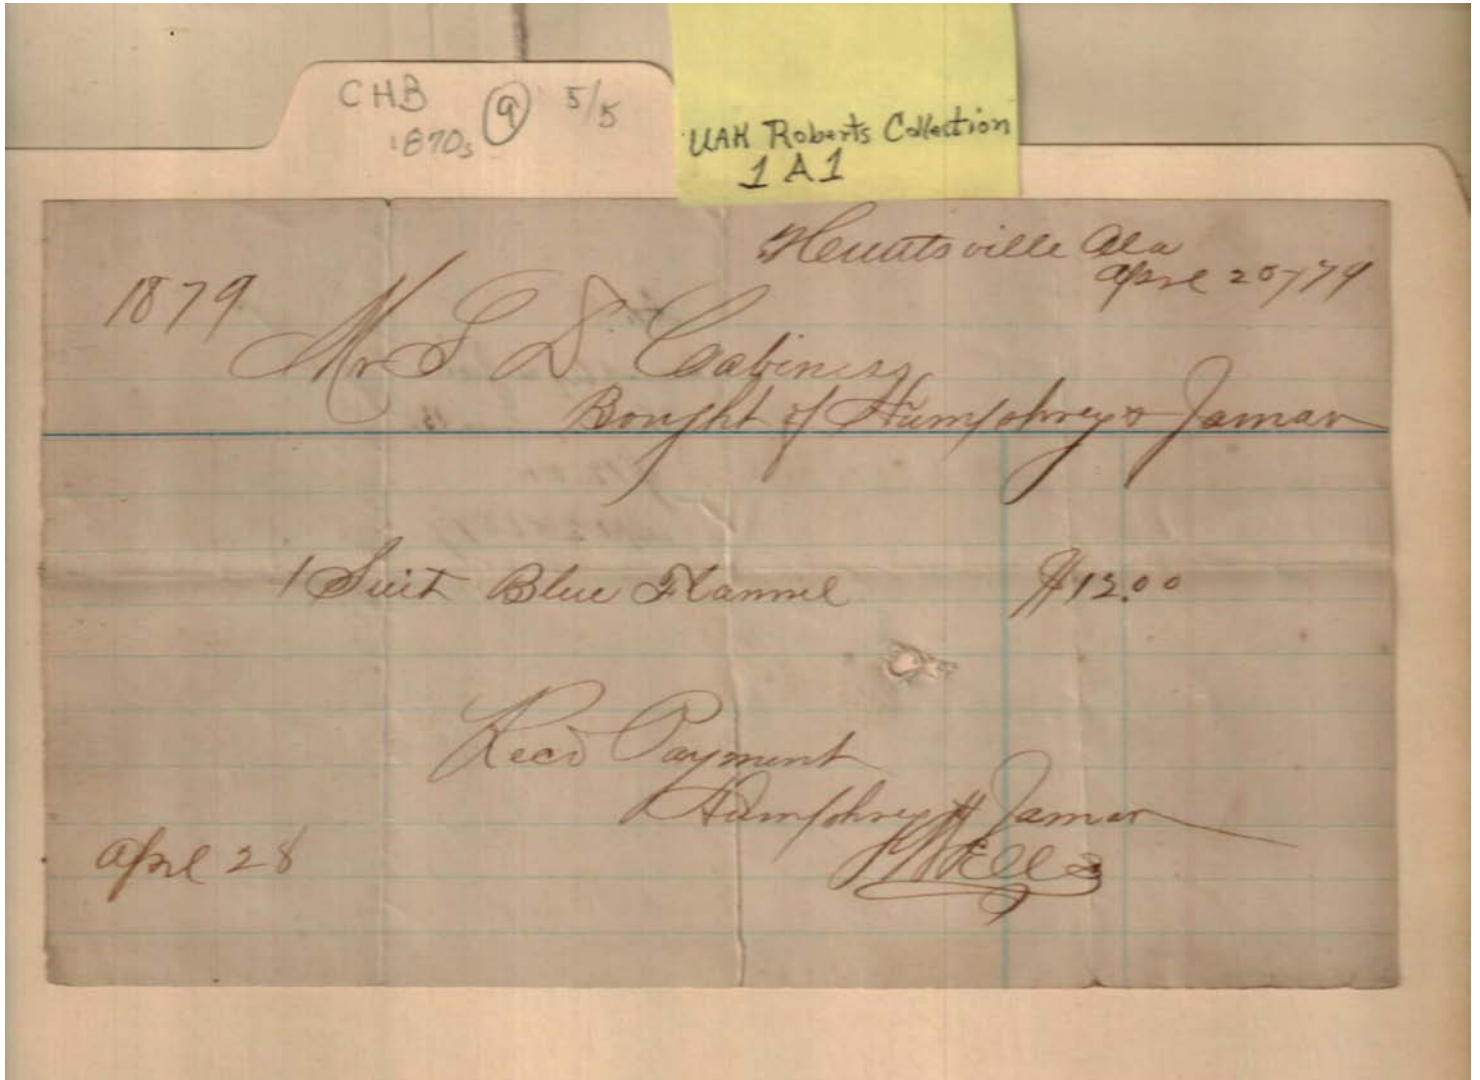 CHB 9 5/5
1870s
UAH Roberts Collection
1A1
Huntsville Ala
1879 April 28/79
Mr S D Cabiness
Bought of Humphrey & Jamar
1 Suit Blue Flannel $12.00
Recd Payment
Humphrey & Jamar
April 28